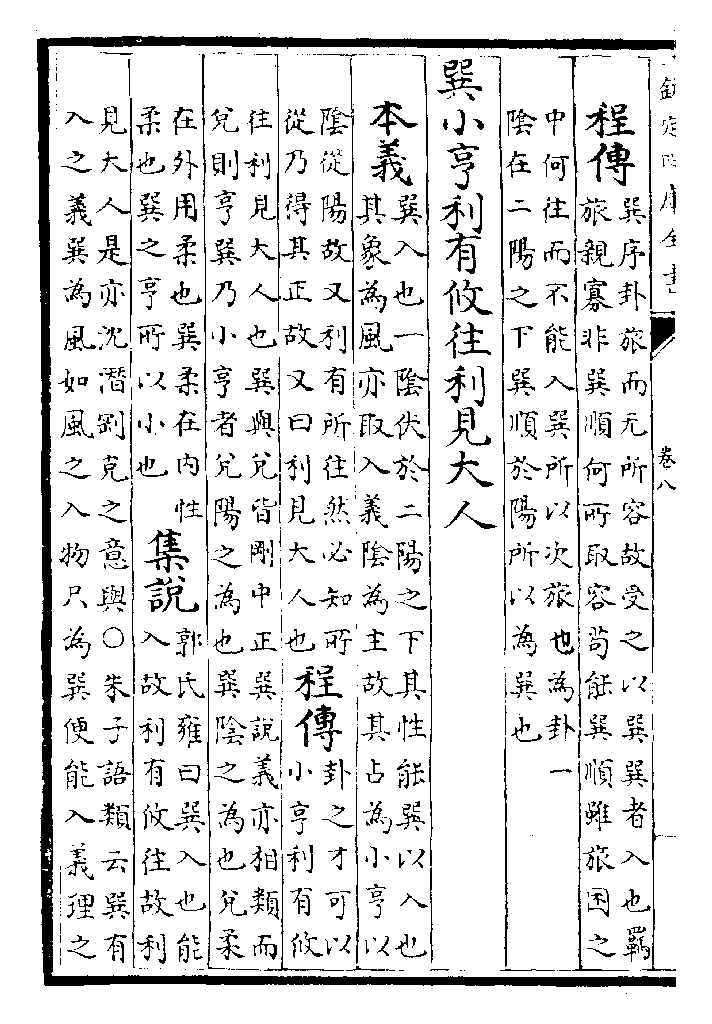 欽定四庫全書
卷八
程傳
巽序卦旅而无所容故受之以巽巽者入也羈
旅親寡非巽順何所取容苟能巽順雖旅困之
中何往而不能入巽所以次旅也為卦一
陰在二陽之下巽順於陽所以為巽也
巽小亨利有攸往利見大人
本義
巽入也一陰伏於二陽之下其性能巽以入也
其象為風亦取入義陰為主故其占為小亨以
陰從陽故又利有所往然必知所
從乃得其正故又曰利見大人也
程傳
卦之才可以
小亨利有攸
往利見大人也巽與兌皆剛中正巽說義亦相類而
兌則亨巽乃小亨者兌陽之為也巽陰之為也兌柔
在外用柔也巽柔在內性
柔也巽之亨所以小也
集說
郭氏雍曰巽入也能
入故利有攸往故利
見大人是亦沈潛剛克之意與○朱子語類云巽有
入之義巽為風如風之入物只為巽便能入義理之